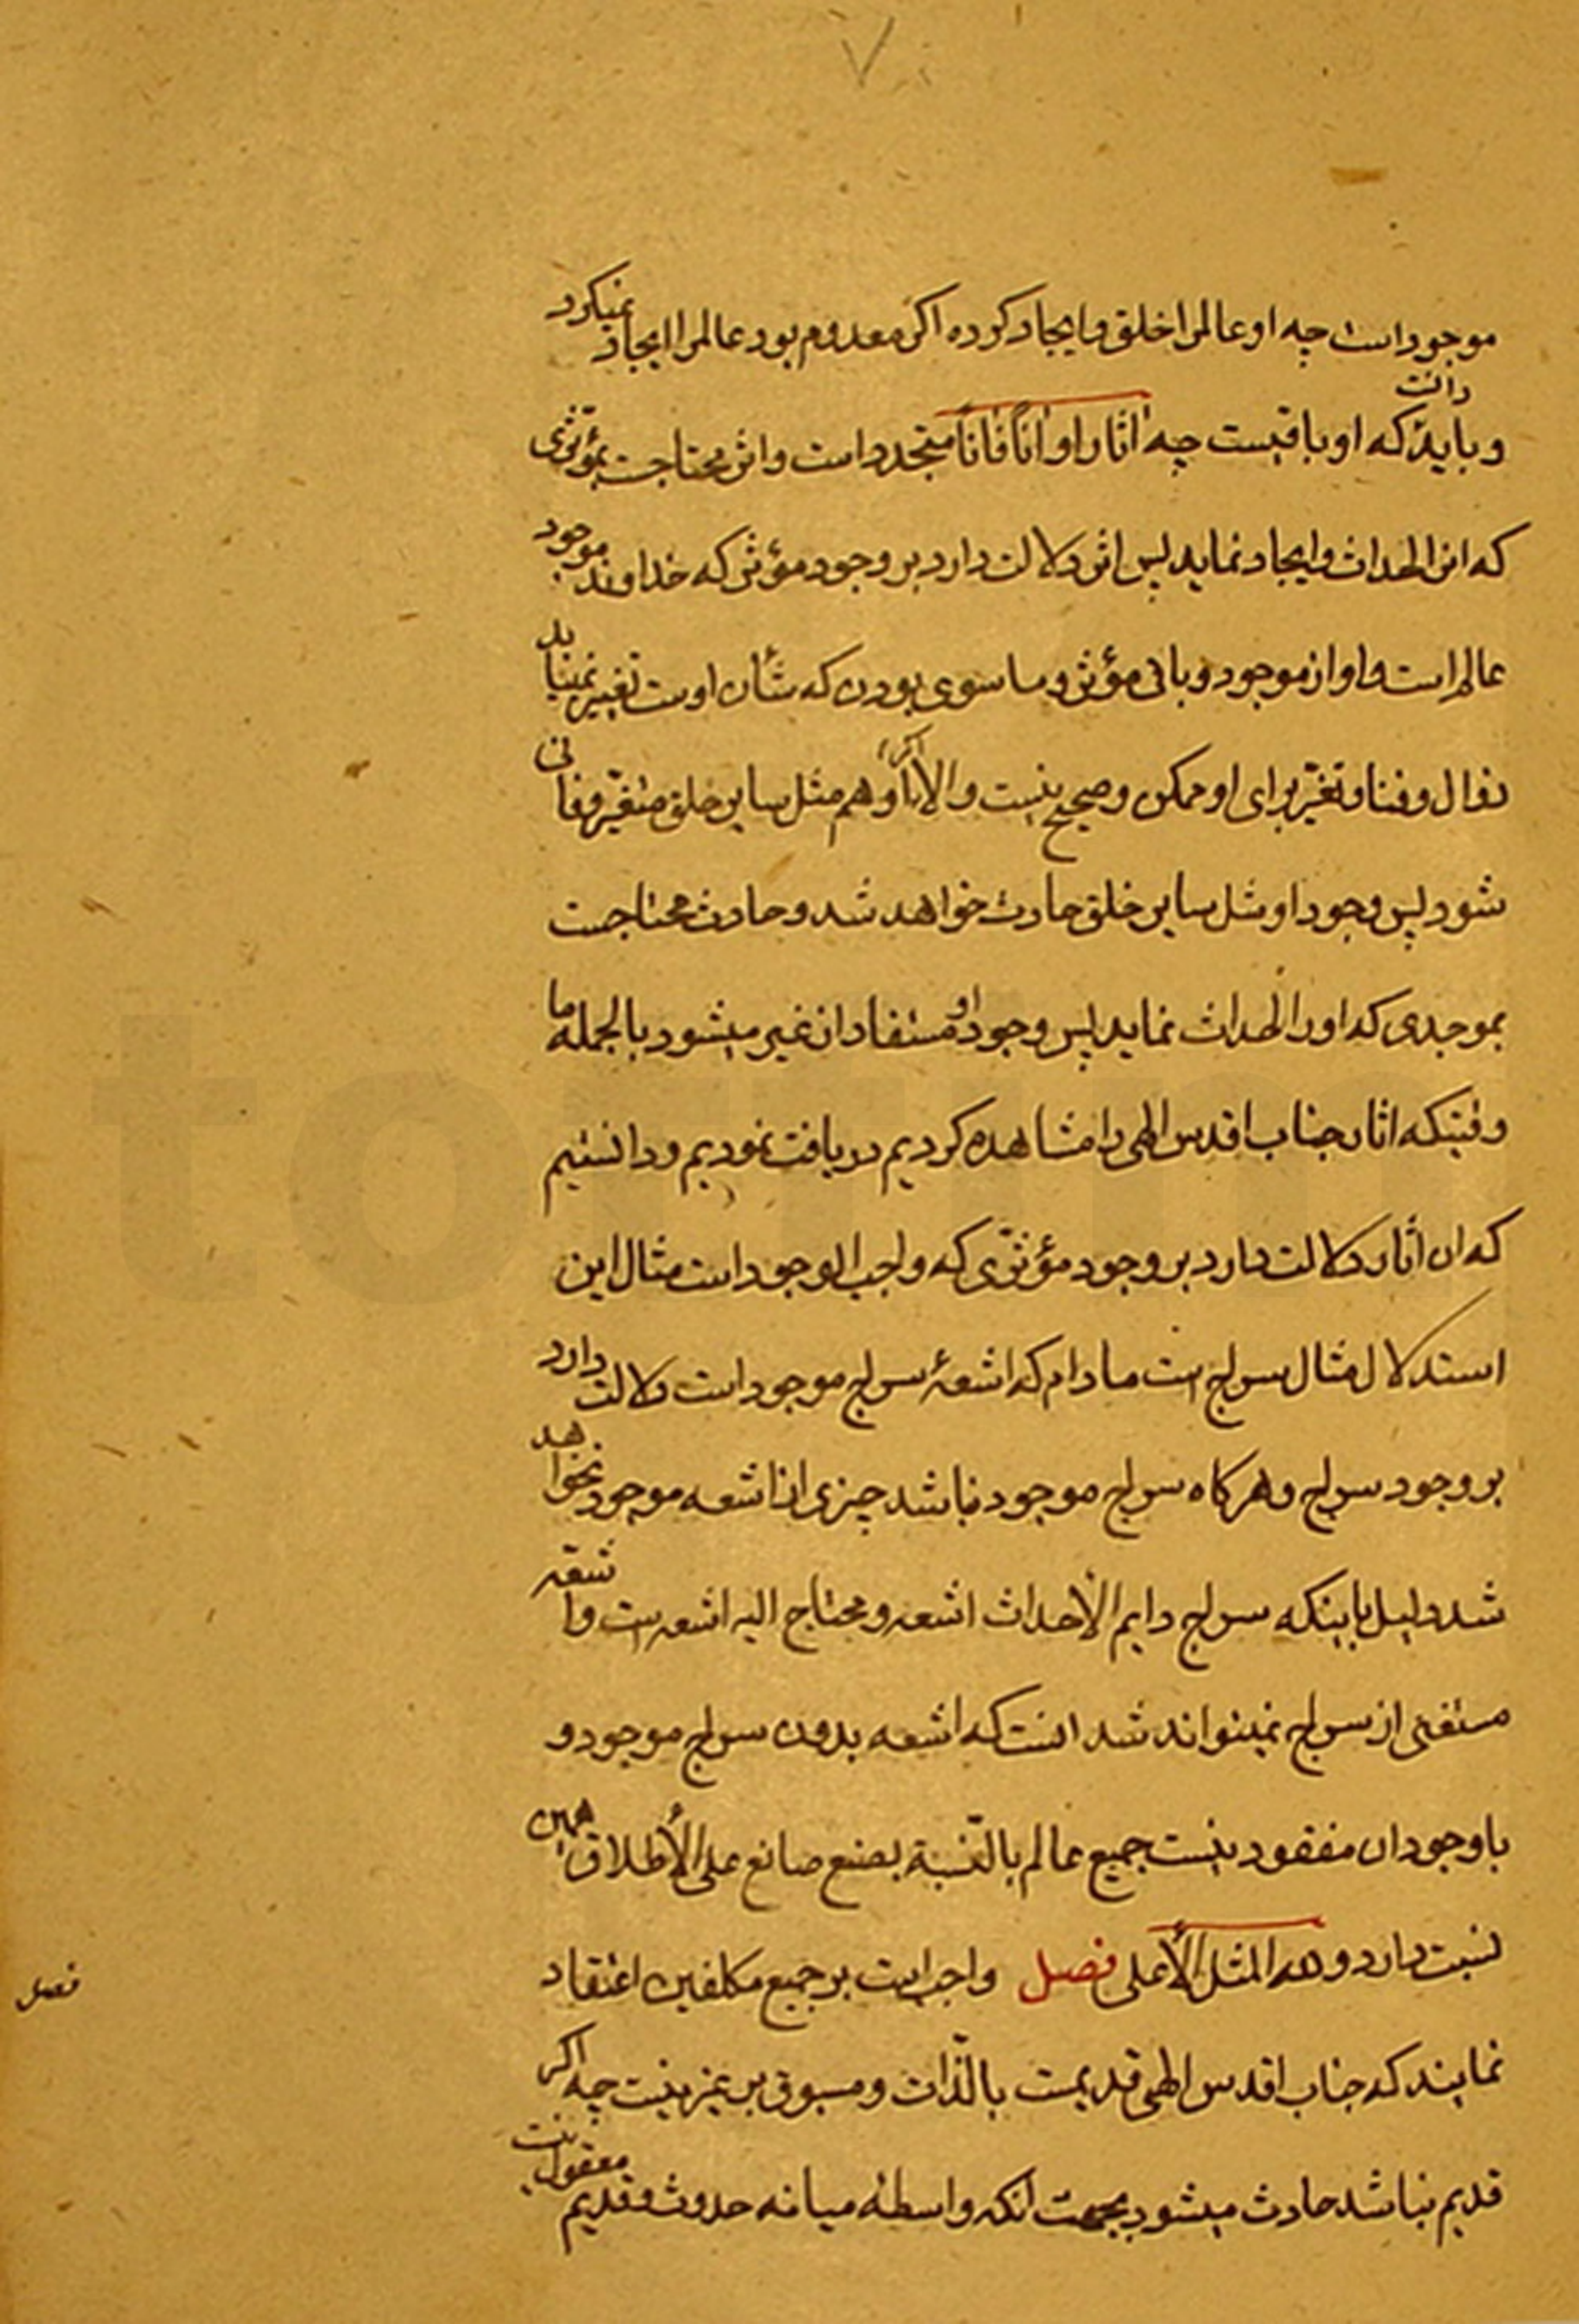 ۷
موجود است چه او عالمرا خلق و ایجاد کرده اکر معدوم بود عالمرا ایجاد نمیکرد
و باید دانست که او باقیست چه اثار او اناً فاناً متجدد است و اثر محتاجست بمؤثری
که انرا احداث و ایجاد نماید پس اثر دلالت دارد بر وجود مؤثر که خداوند موجود
عالم است و او از موجود و باقی مؤثر و ما سوی بودن که شأن اوست تغییر نمینماید
زوال و فنا و تغیّر برای او ممکن و صحیح نیست و الا او هم مثل سایر خلق متغیّر و فانی
شود پس وجود او مثل سایر خلق حادث خواهد شد و حادث محتاجست
بموجدی که او را احداث نماید پس وجود او مستفاد از غیر میشود بالجمله ما
وقتیکه اثار جناب اقدس الهی را مشاهده کردیم دریافت نمودیم و دانستیم
که ان اثار دلالت دارد بر وجود مؤثری که واجب الوجود است مثال این
استدلال مثال سراج است مادام که اشعۀ سراج موجود است دلالت دارد
بر وجود سراج و هرکاه سراج موجود نباشد چیزی از اشعه موجود نخواهد
شد دلیل باینکه سراج دایم الأحداث اشعه و محتاج الیه اشعه است و اشعّه
مستغنی از سراج نمیتواند شد انست که اشعه بدون سراج موجود و
با وجود ان مفقود نیست جمیع عالم بالنّسبة بصنع صانع علی الأطلاق همین
نسبت دارد و لله المثل الأعلی فصل واجب است بر جمیع مکلفین اعتقاد
نمایند که جناب اقدس الهی قدیمست بالذّات و مسبوق بر غیر نیست چه اکر
قدیم نباشد حادث میشود بجهت انکه واسطه میانه حدوث و قدیم معقول نیست
فصل
torim